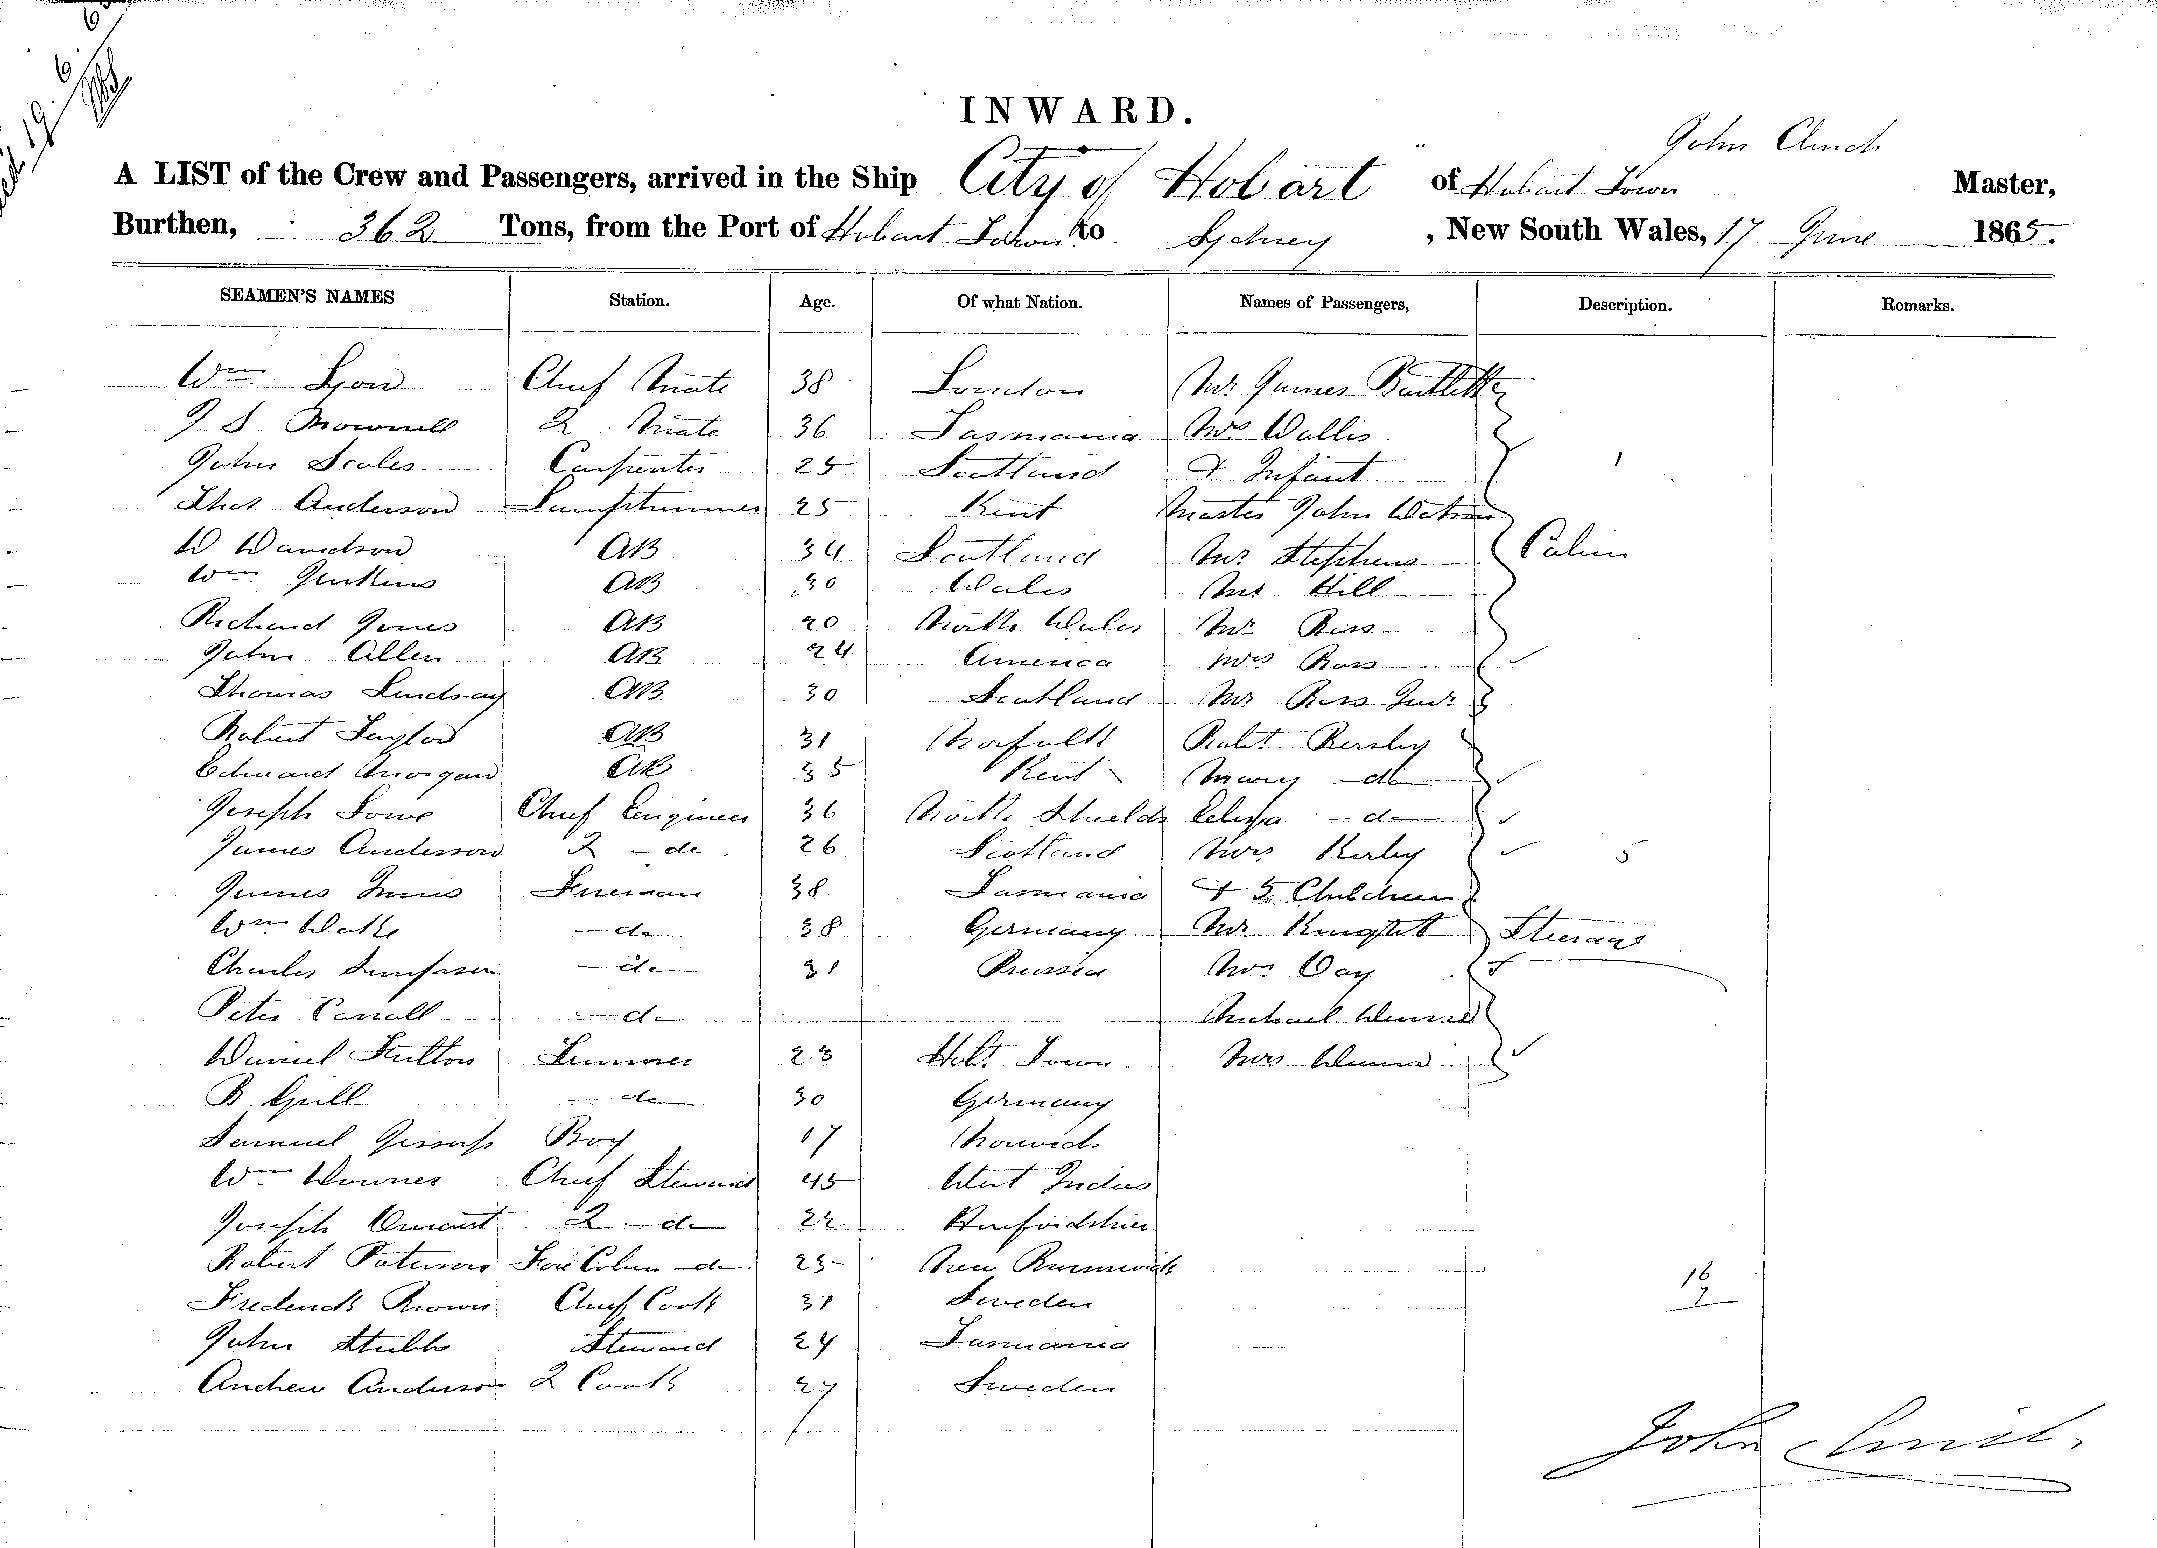 INWARD.
John Clinch
A LIST of the Crew and Passengers, arrived in the Ship City of Hobart of Hobart Town Master,
Burthen, 362 Tons, from the Port of Hobart Town to Sydney, New South Wales, 17 June 1865.
SEAMEN'S NAMES Station. Age. Of what Nation. Names of Passengers, Description. Remarks.
Wm Lyon Chief Mate 38 London Mr James Bartlett
2 Mate 36 Tasmania Mrs Wallis
John Scales Carpenter 25 Scotland & Infant 1
Thos Anderson Lamptrimmer 25 Kent Master John Watson
W Davidson AB 34 Scotland Mr Stephens Cabin
Wm Jenkins AB 30 Wales Mr Hill
Richard Jones AB 20 North Wales Mr Ross
John Allen AB 24 America Mrs Ross
Thomas Lindsay AB 30 Scotland Mr Ross Junr
Robert Taylor AB 31 Norfolk Robt
Edward Morgan AB 35 Kent Mary do
Joseph Lowe Chief Engineer 36 North Shields Eliza do
James Anderson 2 do 26 Scotland Mrs 5
James Innis Fireman 38 Tasmania & 5 Children
Wm do 38 Germany Mr Knight Steerage
Charles do 31 Prussia Mrs Day
Peter Carroll do Michael
Daniel Fulton Trimmer 23 Hobt Town Mrs
B Grill do 30 Germany
Samuel Jessup Boy 17 Norwich
Wm Downes Chief Steward 45 West Indies
Joseph 2 do 22
Robert Paterson Fore Cabin do 23 New Brunswick
Frederick Brown Chief Cook 31 Sweden
16
7
John Stubbs Steward 24 Tasmania
Andrew Anderson 2 Cook 27 Sweden
John Clinch.